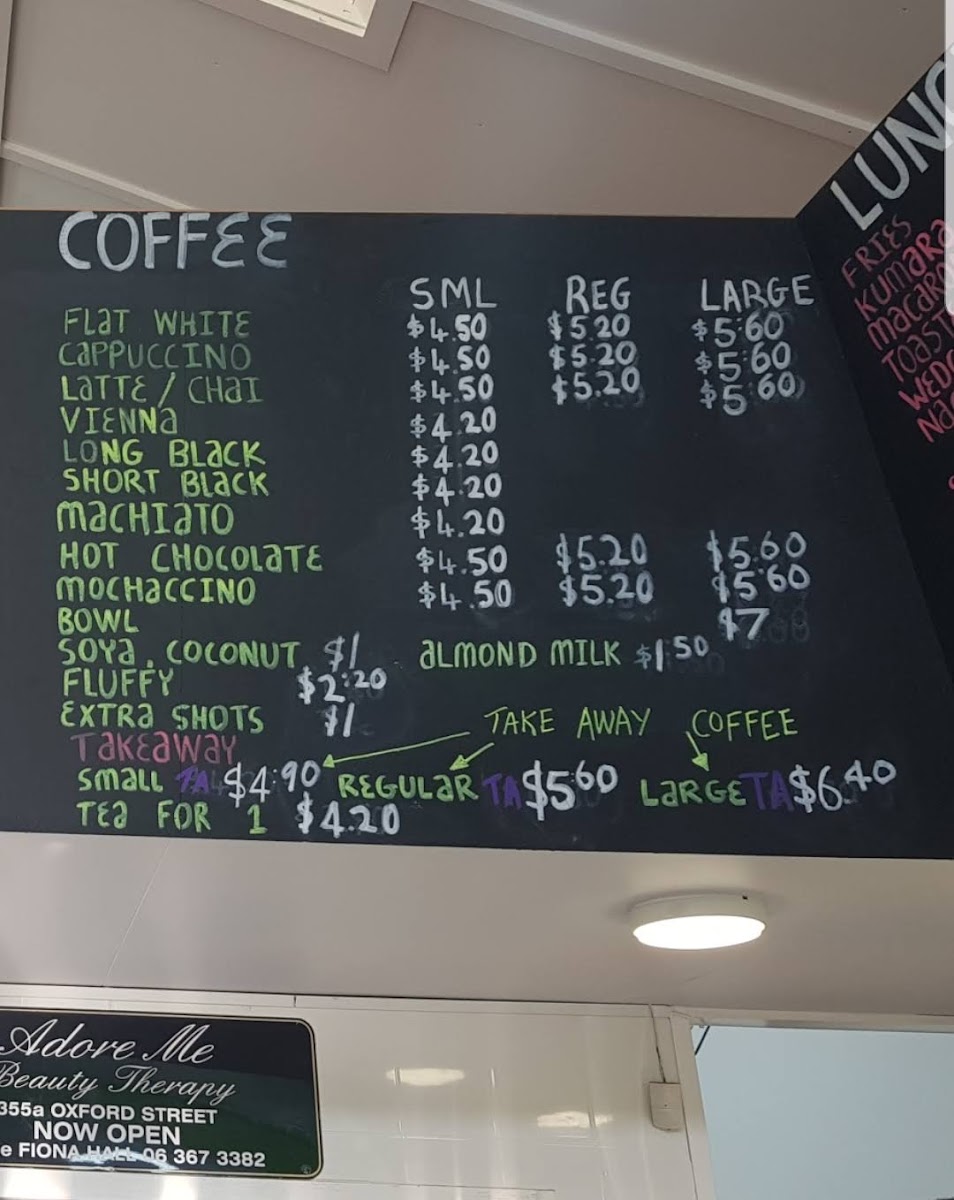 COFFEE
SML REG LARGE
FLAT WHITE $4.50 $5.20 $5.60
CAPPUCCINO $4.50 $5.20 $5.60
LATTE / CHAI $4.50 $5.20 $5.60
VIENNA $4.20
LONG BLACK $4.20
SHORT BLACK $4.20
MACHIATO $4.20
HOT CHOCOLATE $4.50 $5.20 $5.60
MOCHACCINO $4.50 $5.20 $5.60
BOWL $7
SOYA, COCONUT $1 ALMOND MILK $1.50
FLUFFY $2.20
EXTRA SHOTS $1 TAKE AWAY COFFEE
TAKEAWAY
SMALL TA $4.90 REGULAR TA $5.60 LARGE TA $6.40
TEA FOR 1 $4.20
FRIES
KUMARA
Adore Me
Beauty Therapy
355a OXFORD STREET
NOW OPEN
FIONA HALL 06 367 3382